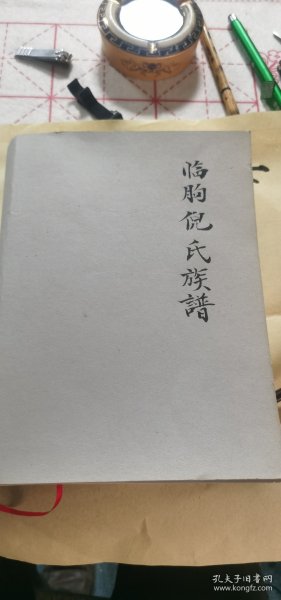 临朐倪氏族譜
孔夫子旧书网
www.kongfz.com